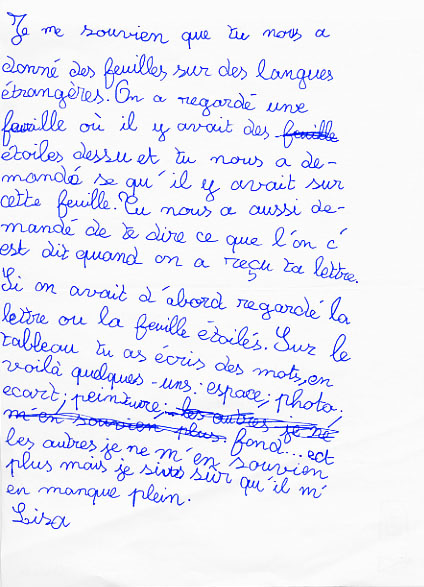 Je me souvien que tu nous a
donné des feuilles sur des langues
étrangères. On a regardé une
feuille où il y avait des feuille
étoiles dessu et tu nous a de-
mandé se qu'il y avait sur
cette feuille. Tu nous a aussi de-
mandé de te dire ce que l'on c'
est dit quand on a reçu ta lettre.
Si on avait d'abord regardé la
lettre ou la feuille étoilés. Sur le
tableau tu as écris des mots, en
voilà quelques-uns: espace; photo.
ecart; peinture; les autres je ne
m'en souvien plus. fond... ect
les autres je ne m'en souvien
plus mais je suis sûr qu'il m'
en manque plein.
Lisa